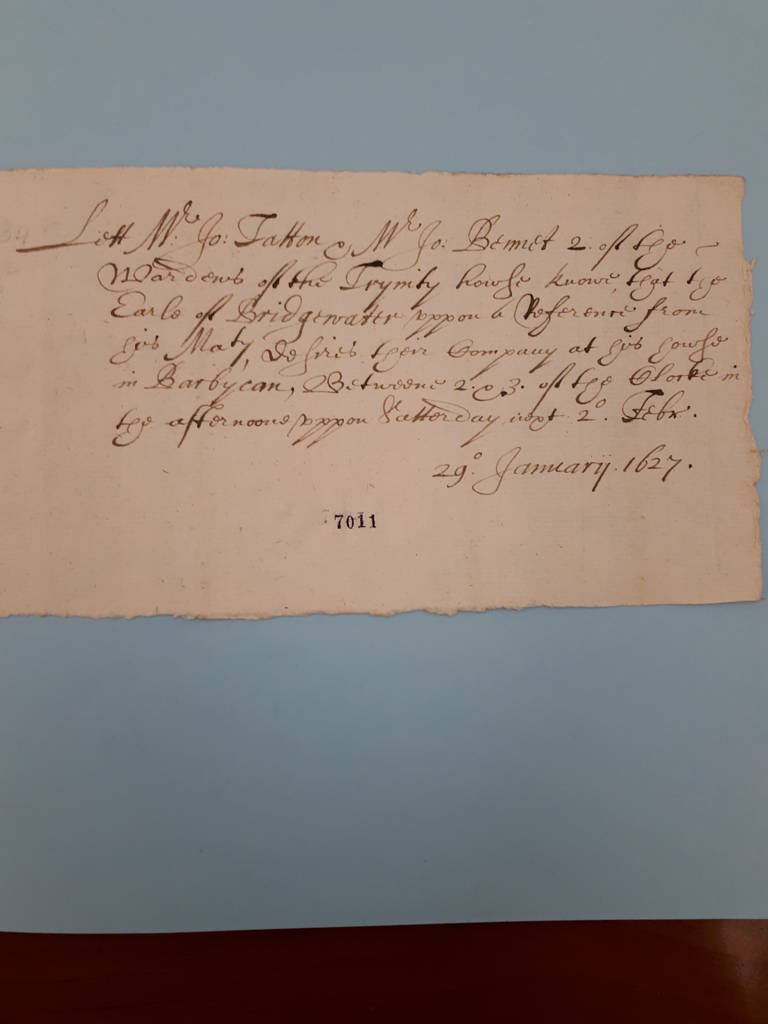 Lett Mr. Jo: Tatton & Mr Jo: Bennet 2. of the
Wardens of the Trynity howse knowe, that the
Earle of Bridgewater vppon a Reference from
his Maty, desires their Company at his howse
in Barbycan, Betweene 2. & 3. of the Clocke in
the afternoone vppon Satterday next 2o. Febr.
29o. January. 1627.
7011